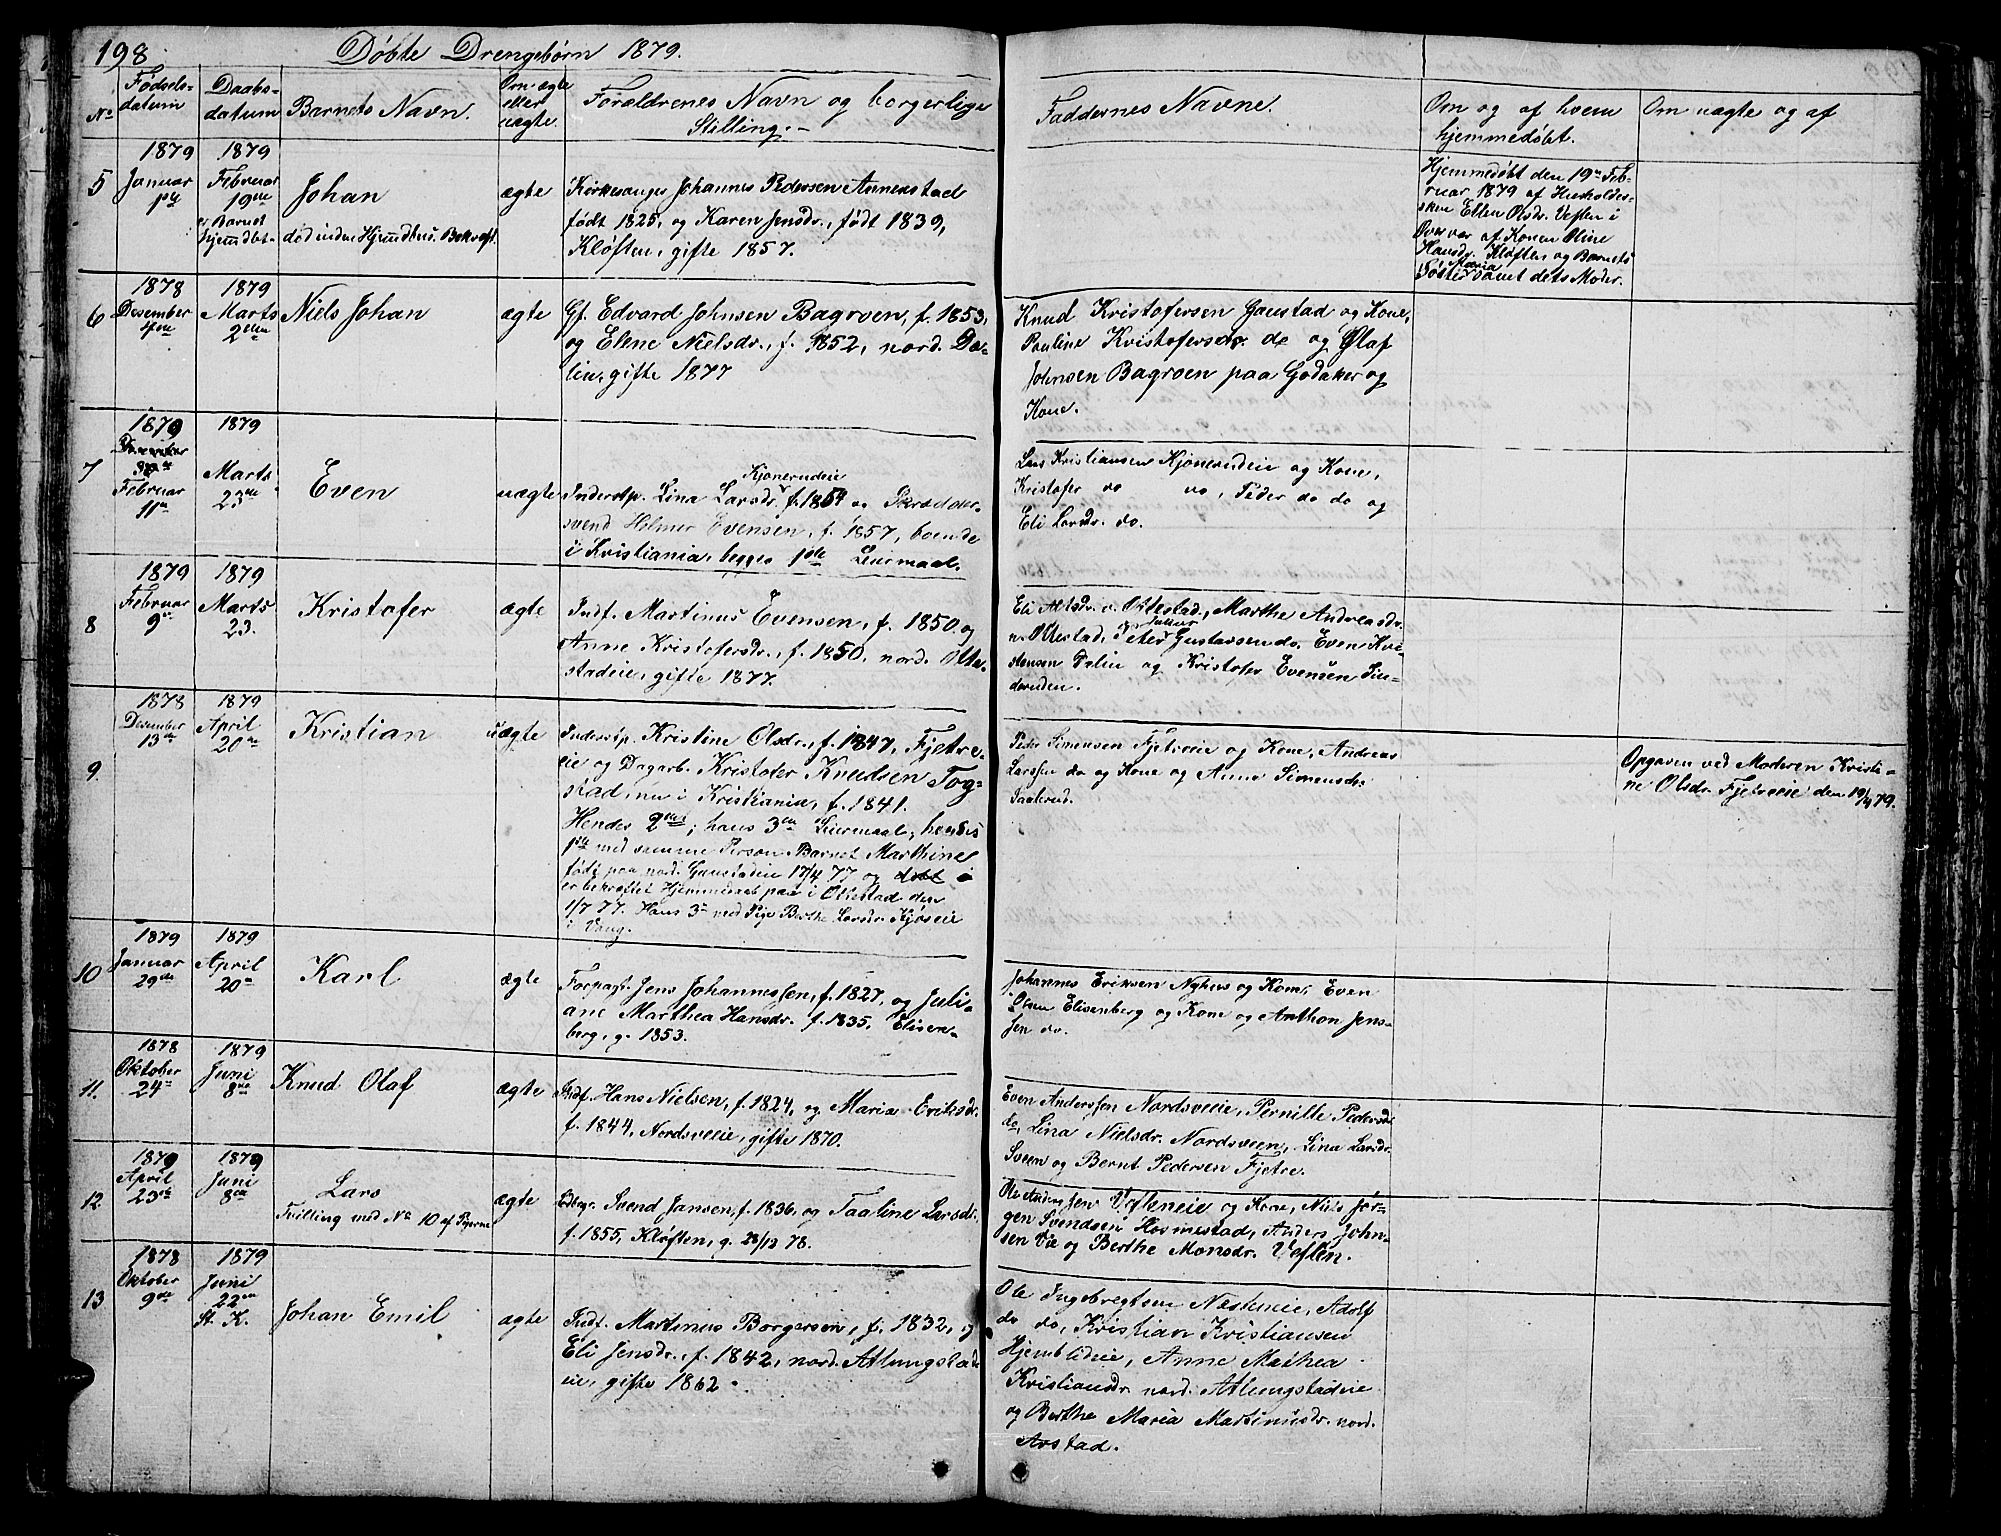 198 Døbte Drengebørn 1879.
No Fødsels-datum Daabs-datum Barnets Navn. Om ægte eller uægte. Forældrenes Navn og borgerlige Stilling.- Faddernes Navne. Om og af hvem hjemmedøbt. Om uægte og af
5 1879 Januar 1879 Februar 19de
Barnet
Johan
død inden
ægte
Kirkesanger Johannes Pedersen Annenstad
født 1825, og Karen Jensdr., født 1839,
Kløften, gifte 1857.
Hjemmedøbt den 19de Feb-
ruar 1879 af Husholders-
sken Ellen Olsdr. Veflen i
Overvær af Konen Oline
Hansdr. Kløften og Barnets
Søster Maria samt dets Moder.
6 1878 Desember 1879 Marts 2den
Niels Johan
ægte
Gf. Edvard Johnsen Bagroen, f. 1853,
og Elene Nielsdr., f. 1852, nord. Da-
lien, gifte 1877
Knud Kristofersen Gaustad og Kone,
Pauline Kristofersdr. do og Olaf
Johnsen Bagroen paa Godaker og
Kone.
7 1879 Februar 11te 1879 Marts 23de
Even
uægte
Kjonerudeie
Inderstp. Lina Larsdr. f. 1854 og Skrædder-
svend Helmer Evensen, f. 1857, boende
i Kristiania, begges 1ste Leiermaal.
Lars Kristiansen Kjonerudeie og Kone,
Kristofer do do, Peder do do og
Eli Larsdr. do.
8 1879 Februar 9de 1879 Marts 23.
Kristofer
ægte
Indf. Martinus Evensen, f. 1850 og
Anne Kristofersdr., f. 1850, nord. Otte-
stadeie, gifte 1877.
Ottestad, Marthe Andreasdr.
n. Ottestad, Peter Gustavsen do. Even Kri-
stensen Dalie og Kristofer Evensen
9. 1878 Desember 13de 1879 April 20de
Kristian
uægte
Inderstp. Kristine Olsdr., f. 1847, Fjetre-
eie og Dagarb. Kristofer Knudsen Tog-
stad, nu i Kristiania, f. 1841.
Hendes 2det; hans 3die Leiermaal; hendes
1ste med samme Person Barnet Marthine
født paa nord. Gaustadeie 17/4 77 og
er bekræftet Hjemmedaab paa i Ottestad den
1/7 77. Hans 3de med Pige Berthe Larsdr. Kjoseie
i Vang.
Peder Simensen Fjetreeie og Kone, Andreas
Larssen do og Kone og Anne Simensdr.
Opgaven ved Moderen Kristi-
ne Olsdr. Fjetreeie den 19/4 79.
10 1879 Januar 29de 1879 April 20de
Karl
ægte
Forpagt. Jens Johannessen, f. 1827, og Juli-
ane Marthea Hansdr. f. 1835, Elisen-
berg, g. 1853.
Johannes Eriksen Nyhus og Kone, Even
Olsen Elisenberg og Kone og Anthon Jens-
sen do.
11. 1878 Oktober 24de 1879 Juni 8de
Knud Olaf
ægte
Indf. Hans Nielsen, f. 1824, og Maria Eriksdr.
f. 1844, Nordsveeie, gifte 1870.
Even Anderssen Nordsveeie, Pernille Pedersdr.
do, Lina Nielsdr. Nordsveen, Lina Larsdr.
Sveen og Bernt Pedersen Fjetre.
12. 1879 April 23de 1879 Juni 8de
Lars
Tvilling med No 10 af Pigerne
ægte
Svend Jansen, f. 1836, og Taaline Larsdr.
f. 1855, Kløften, g. 28/12 78.
Ole Anderssen Vefleneie og Kone, Niels Jør-
gen Svendsen Hosmestad, Anders John-
sen Vie og Berthe Monsdr. Veflen.
13 1878 Oktober 9de 1879 Juni 22de St. K.
Johan Emil
ægte
Indf. Martinus Borgersen, f. 1832, og
Eli Jensdr., f. 1842, nord. Atlungstad-
eie, gifte 1862.
Ole Ingebregtsen Næsteneie, Adolf
do do, Kristian Kristiansen
Hjemblideie, Anne Mathea
Kristiansdr. nord. Atlungstadeie
og Berthe Maria Martinusdr. nord.
Arstad.